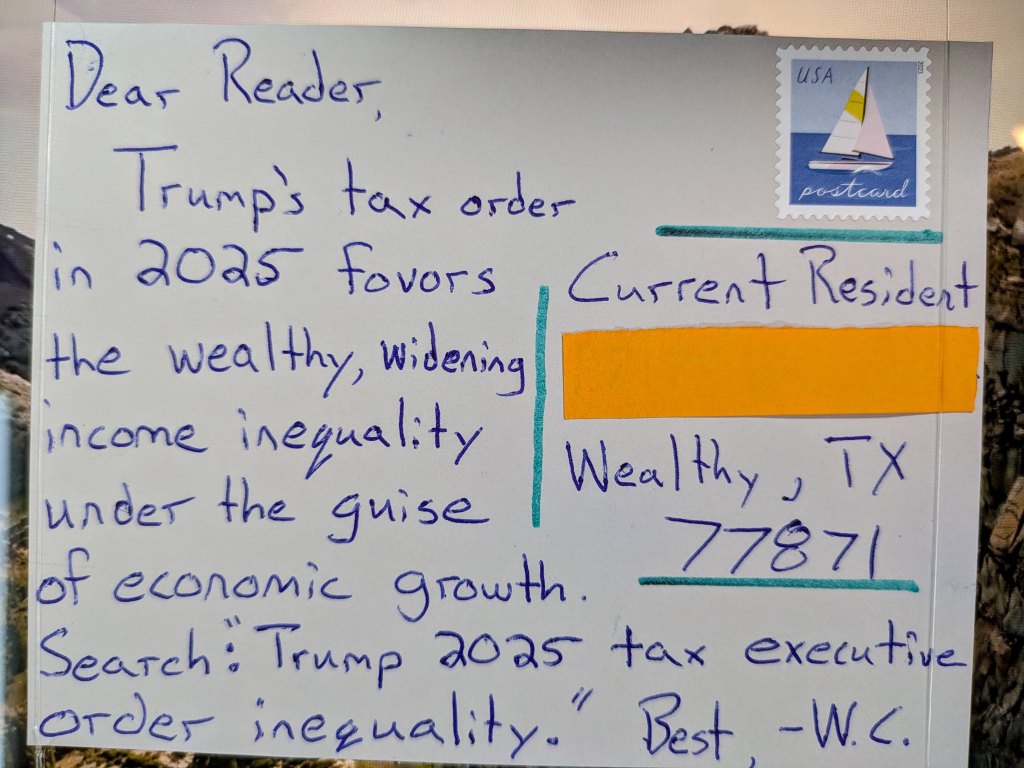 Dear Reader,
Trump's tax order
in 2025 favors
the wealthy, widening
income inequality
under the guise
of economic growth.
Search: "Trump 2025 tax executive
order inequality." Best, -W.C.
USA
2023
postcard
Current Resident
Wealthy, TX
77871